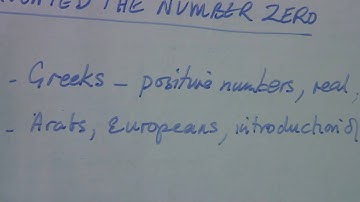 THE NUMBER ZERO
- Greeks - positive numbers, real,
- Arabs, Europeans, introduction of